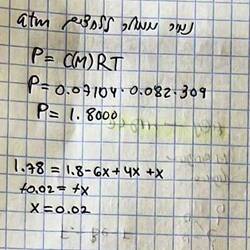 atm
P = C(M)RT
P = 0.07104·0.082·309
P = 1.8000
1.78 = 1.8-6x+4x+x
+0.02 = +x
x = 0.02